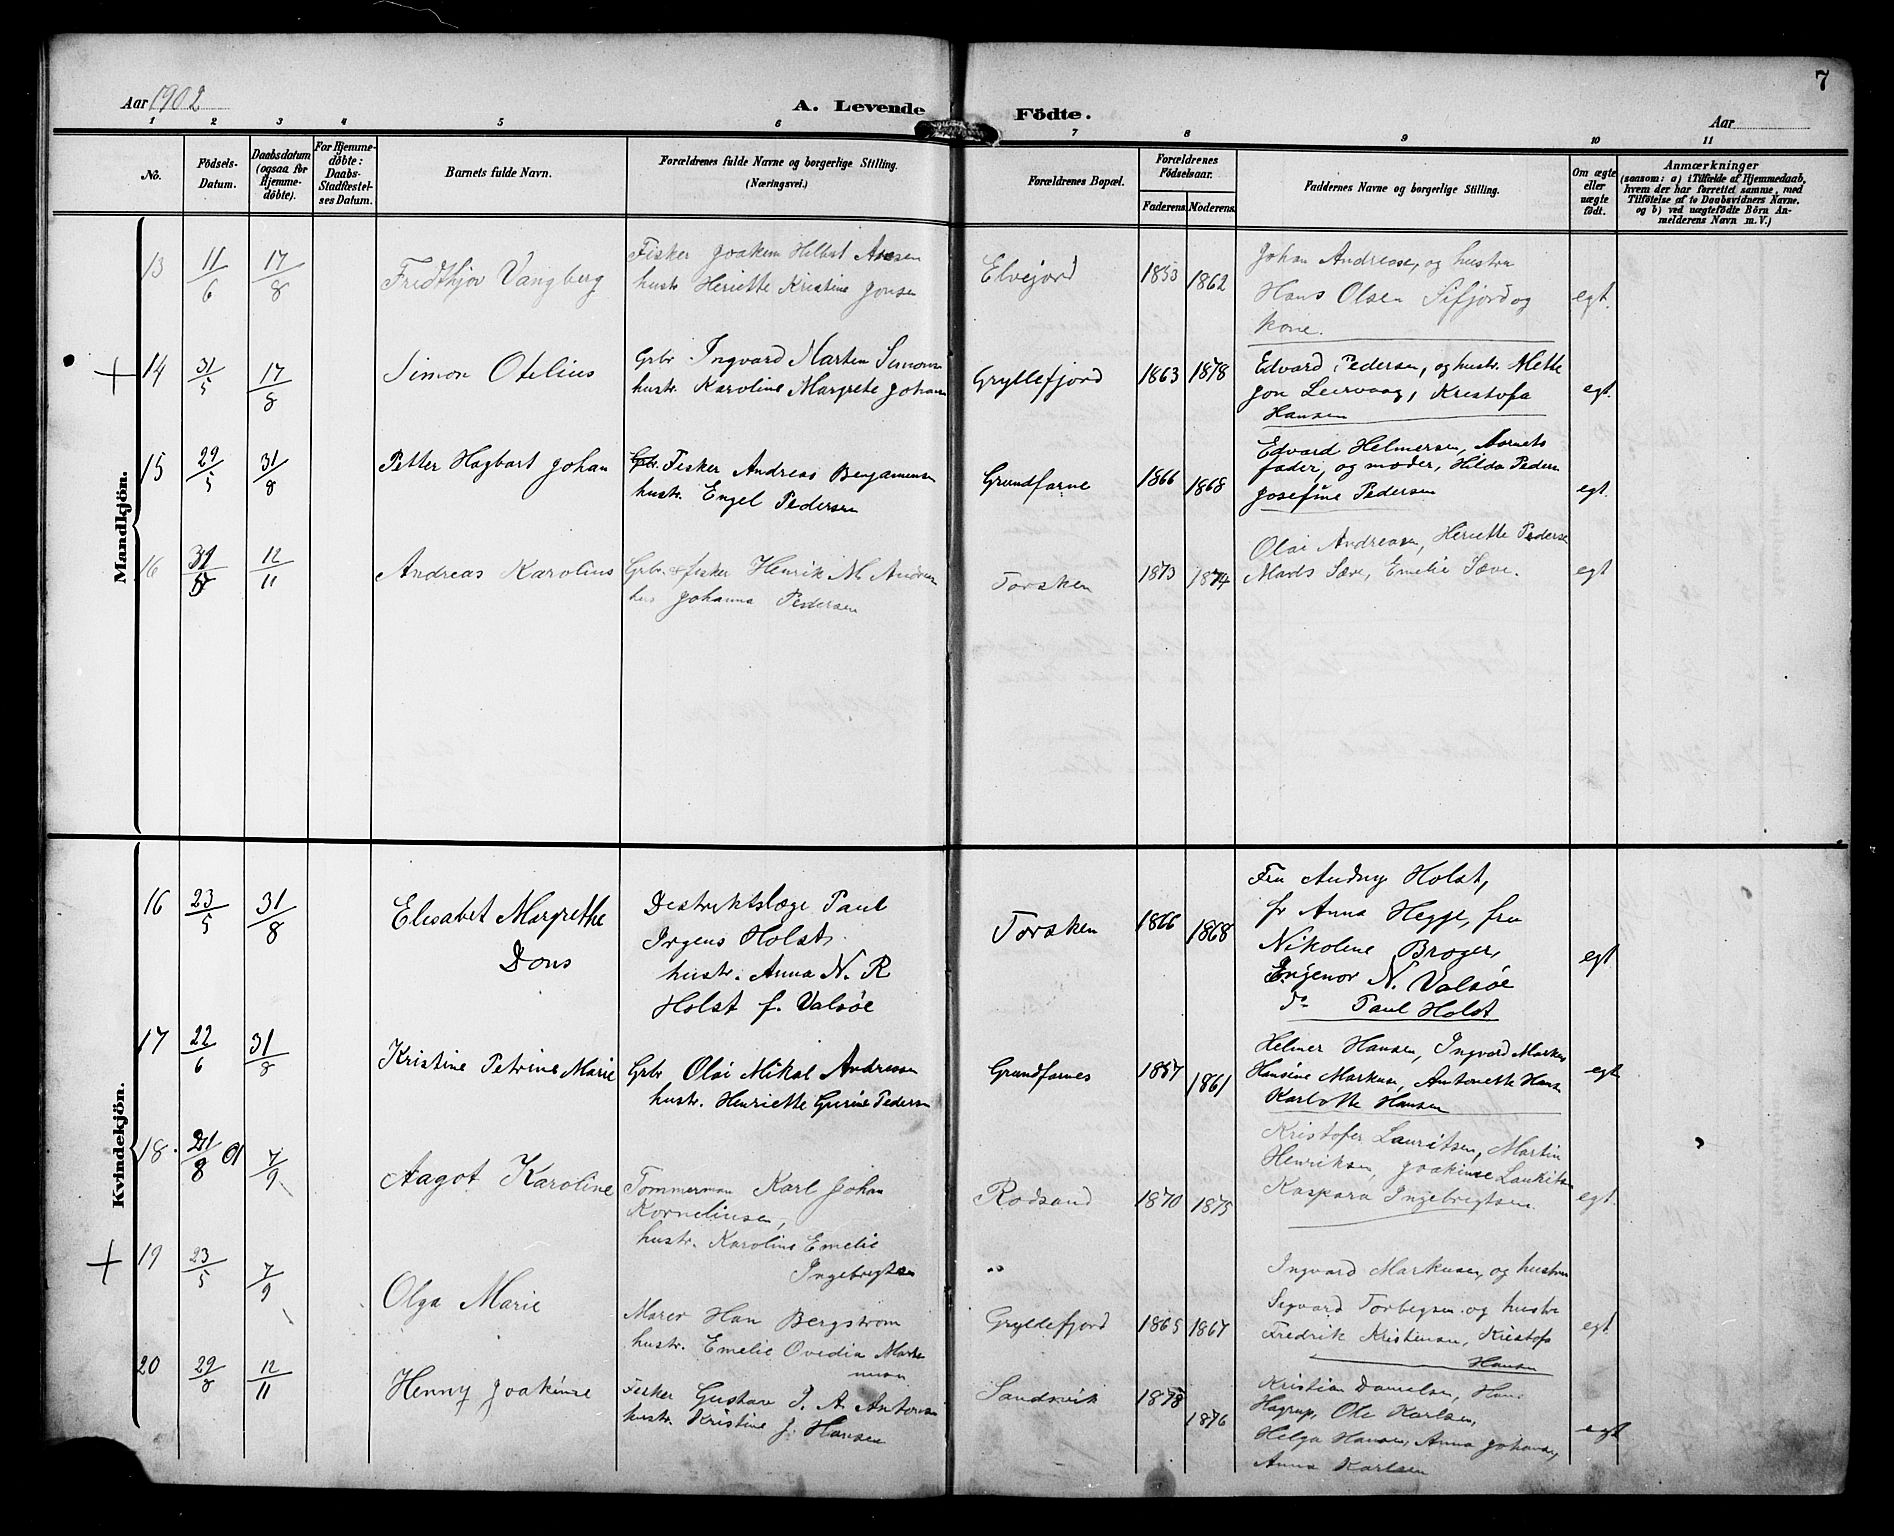 7
Aar 1902
A. Levende Födte.
Aar
1 2 3 4 5 6 7 8 9 10 11
No.
Födsels-Datum.
Daabsdatum (ogsaa for Hjemmedöbte).
For Hjemmedøbte: Daabs-Stadfæstelses Datum.
Barnets fulde Navn.
Forældrenes fulde Navne og borgerlige Stilling.
(Næringsvei.)
Forældrenes Bopæl.
Forældrenes Födselsaar.
Faderens. Moderens.
Faddernes Navne og borgerlige Stilling.
Om ægte eller uægte födt.
Anmærkninger
(saasom: a) i Tilfælde af Hjemmedaab, hvem der har forrettet samme, med Tilföielse af to Daabsvidners Navne, og b) ved uægtefödte Börn Anmelderens Navn m. V.)
Mandkjön.
13 11/6 17/8 Fredthjov Vangberg
Fisker Joakem Hilbert Ansen
hustr Heriette Kristine Jonsen
Elvejord 1853 1862
Johan Andreasen, og hustru
Hans Olsen Sifjord og
kone.
egt.
14 31/5 17/8 Simon Otelius
Grbr Ingvard Marten Simons
hustr. Karoline Margrete Johans
Gryllefjord 1863 1878
Edvard Pedersen, og hustr. Mette
Jon Leirvaag, Kristofa
Hansen
egt.
15 29/5 31/8 Petter Hagbart Johan
Grbr. Fisker Andreas Benjamensen
hustr. Engel Pedersen
Grundfarne 1866 1868
Edvard Helmersen, barnets
fader, og moder, Hilda Pedersn
Josefine Pedersen
egt.
16 31/5 12/11 Andreas Karolius
Grbr. & fisker Henrik M. Andreas
hus Johanna Pedersen
Torsken 1873 1874
Olai Andreasen, Heriette Pederse
Marts Sæve, Emelie Sæve.
egt
Kvindekjön.
16 23/5 31/8 Elesabet Margrethe
Dons
Destriktslæge Paul
Irgens Holst.
hustr. Anna N. R
Holst f. Valsöe
Torsken 1866 1868
Fru Audny Holst,
fr Anna Hegge, fru
Nikoline Broger,
Enjenør N. Valsöe
Do Paul Holst
egt
17 22/6 31/8 Kristine Petrine Marie
Grbr Olai Mikal Andresen
hustr. Henriette Gurine Peders
Grundfarnes 1857 1861
Helmer Hansen, Ingvard Markus
Hansine Markuse, Antonette Hans
Karlotte Hansen
egt
18. 21/8 01 7/9 Aagot Karoline
Tommerman Karl Johan
Korneliusen,
hustr. Karoline Emelie
Ingebrigtsen
Rodsand 1870 1875
Kristofer Lauritsen, Martin
Henriksen, Joakinse Lauritsn
Kaspara Ingebrigtsen.
egt.
19 23/5 7/9 Olga Marie
Murer Han Bergstrom
hustr. Emelie Ovedia Marte
nusn
Gryllefjord 1865 1867
Ingvard Markusen, og hustru
Sigvard Torbegsen og hustr
Fredrik Kristensen, Kristofa
Hansen
egt
20 29/8 12/11 Henny Joakinse
Fisker Gustav J. A. Antons
hustr. Kristine J. Hansen
Sandsvik 1878 1876
Kristian Danielsen, Hans
Hagrup, Ole Karlsen,
Helga Hansen, Anna Johans,
Anna Karlsen
egt